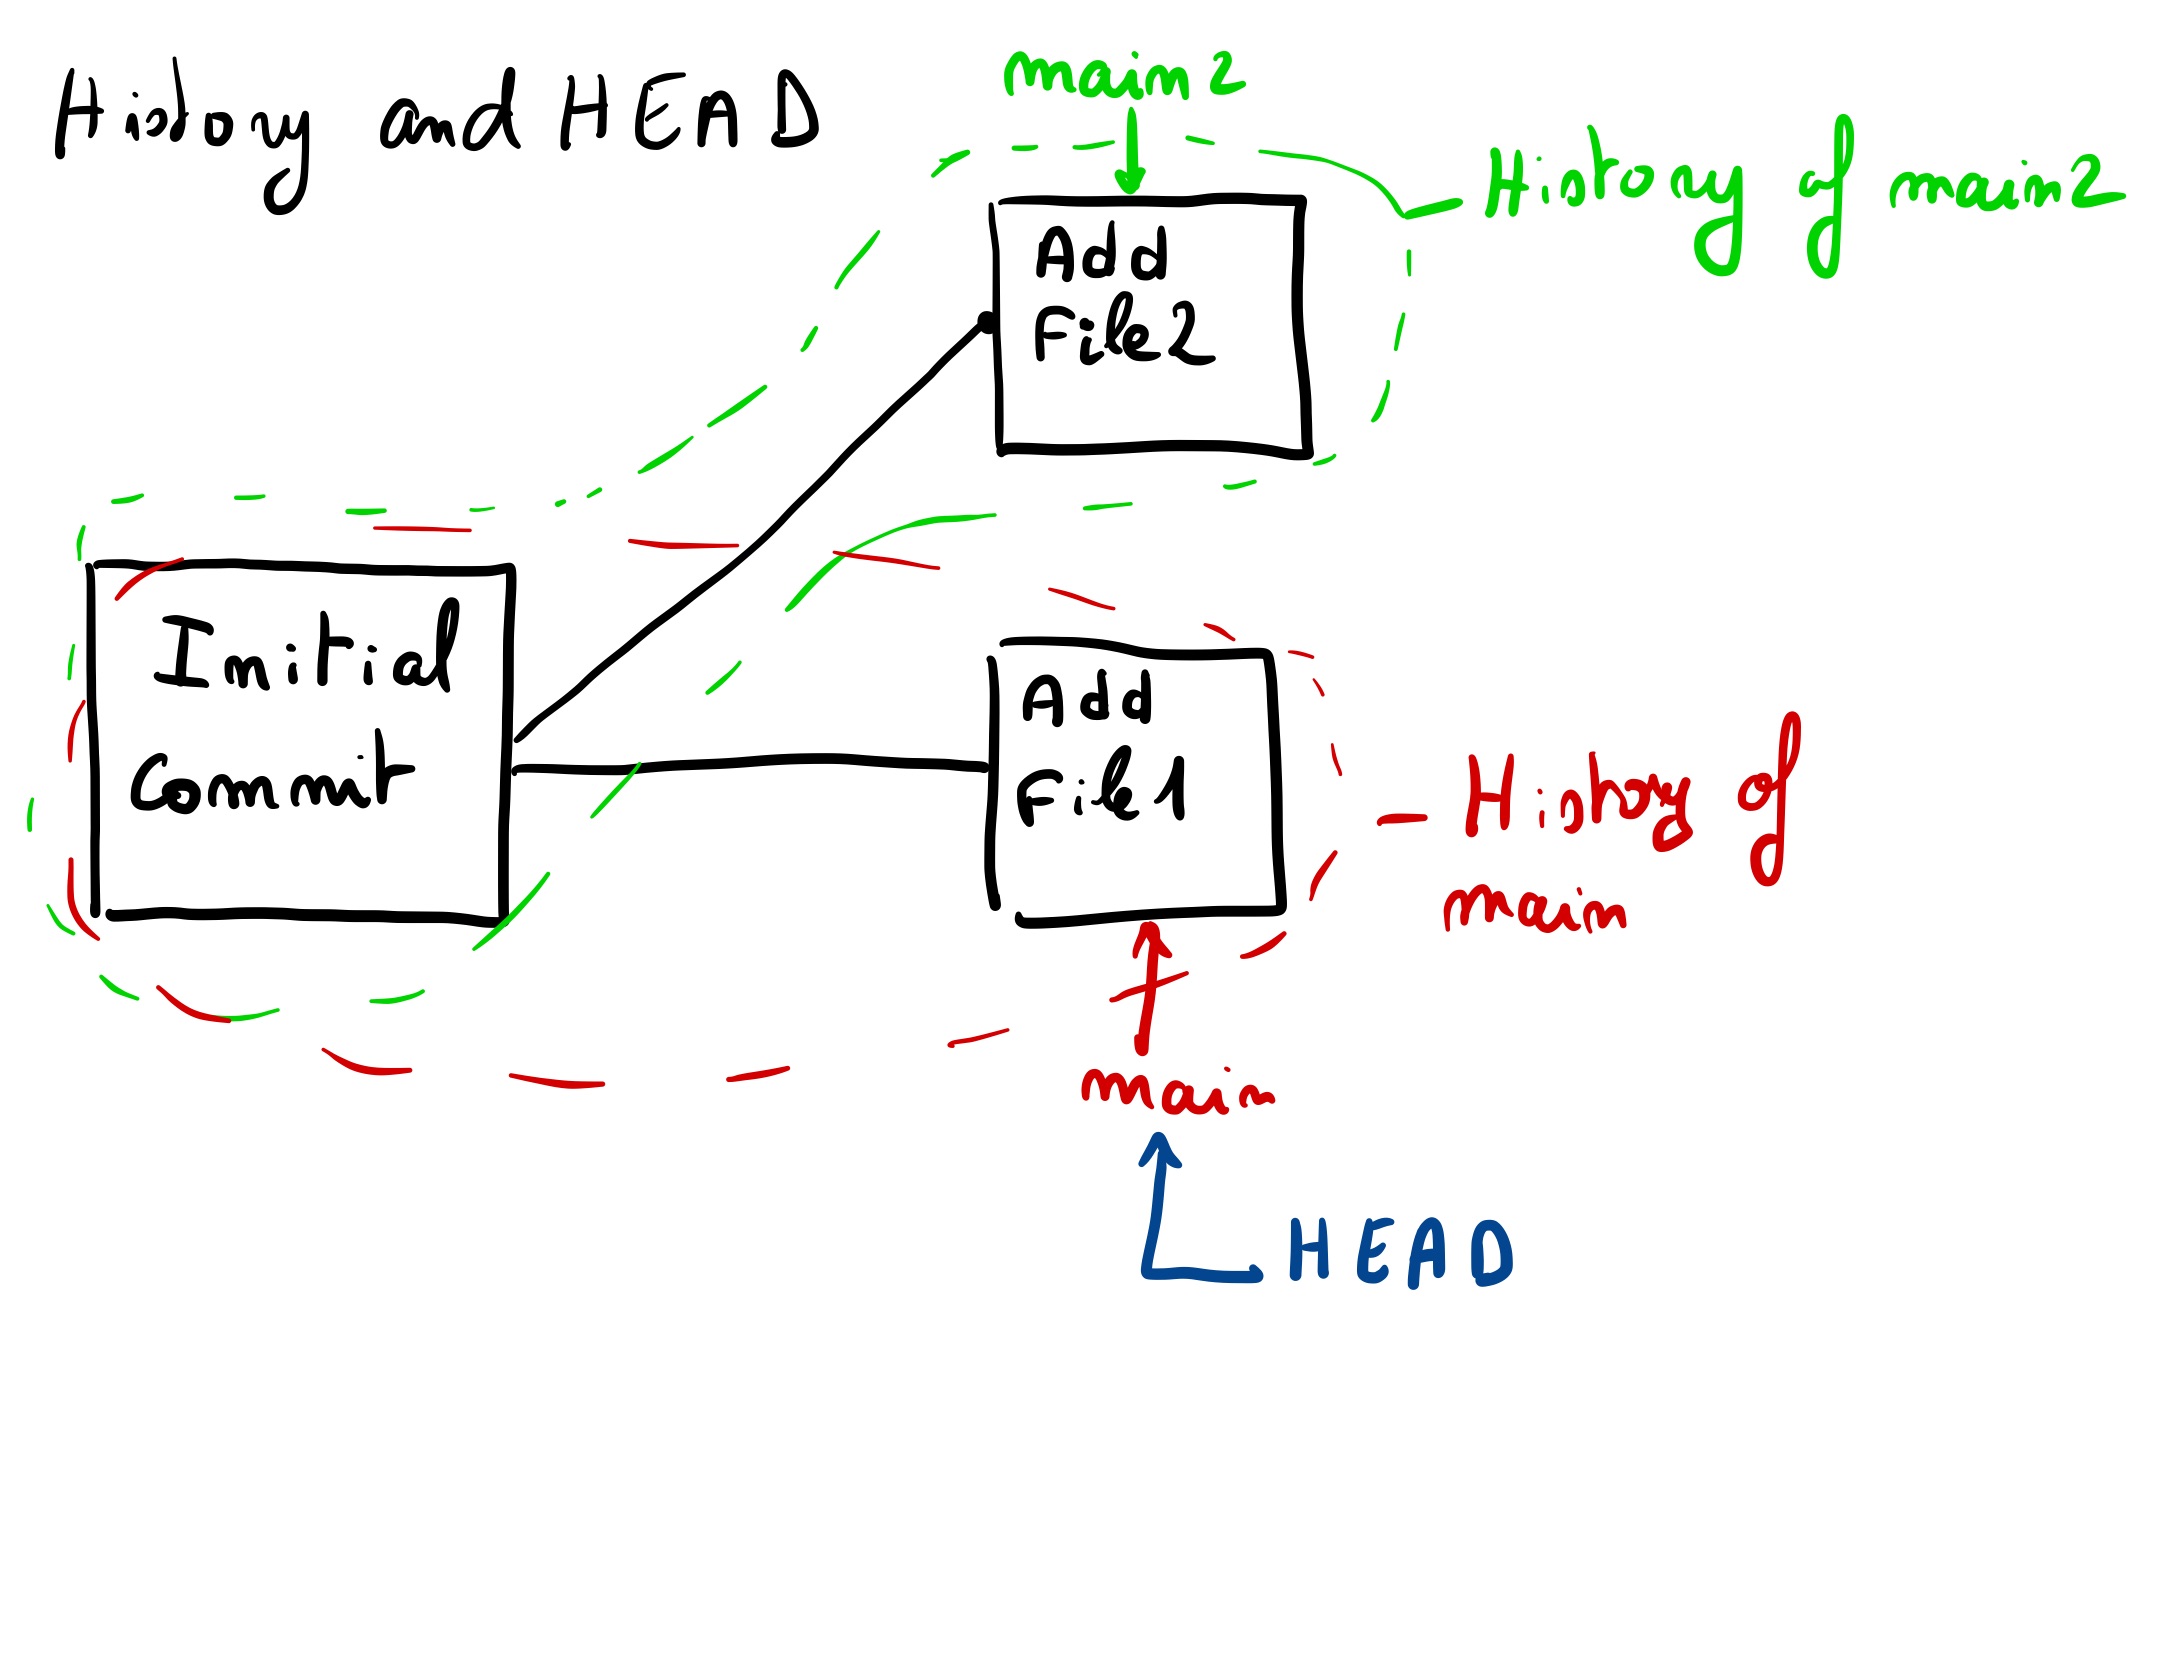 History and HEAD
main2
History of main2
Add
File2
Initial
Commit
Add
File1
History of
main
main
HEAD